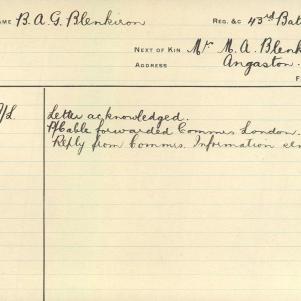 NAME B. A. G. Blenkiron
REG. &C 43rd Bat
NEXT OF KIN Mr M. A. Blenk
ADDRESS Angaston.
F
/L. Letter acknowledged.
P/Cable forwarded Commrs London.
Reply from Commrs. Information